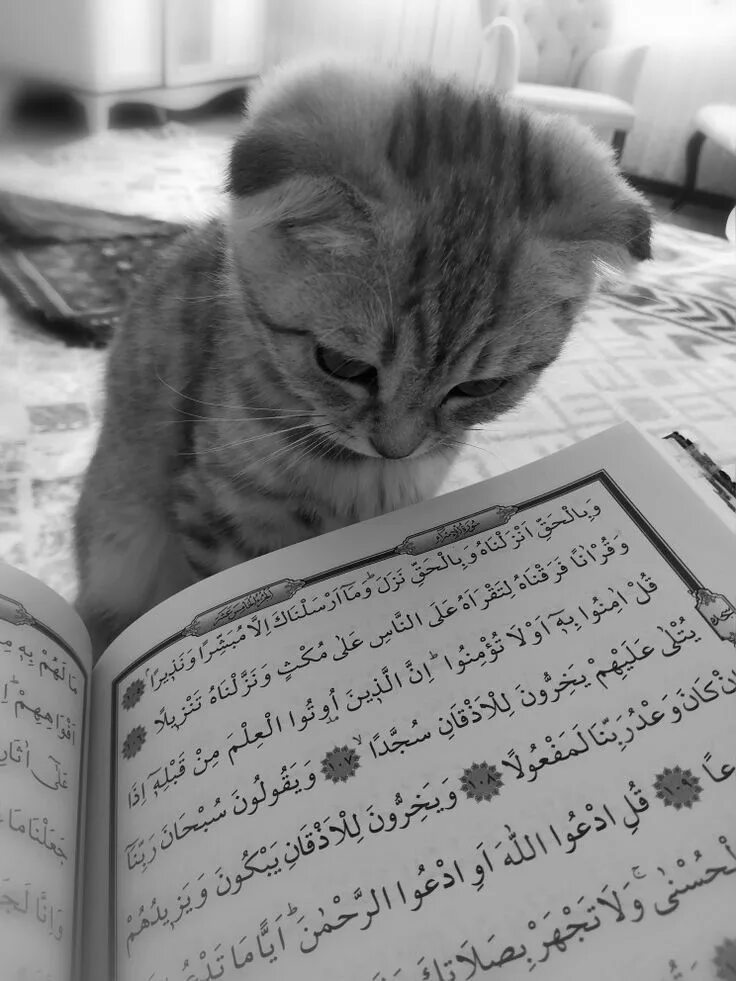 سُورَةُ الْاِسْرَاءِ
وَبِالْحَقِّ اَنْزَلْنَاهُ وَبِالْحَقِّ نَزَلَۜ وَمَٓا اَرْسَلْنَاكَ اِلَّا مُبَشِّرًا وَنَذِيرًاۢ
وَقُرْاٰنًا فَرَقْنَاهُ لِتَقْرَاَهُ عَلَى النَّاسِ عَلٰى مُكْثٍ وَنَزَّلْنَاهُ تَنْزِيلًا
قُلْ اٰمِنُوا بِهٖٓ اَوْ لَا تُؤْمِنُواۜ اِنَّ الَّذٖينَ اُو۫تُوا الْعِلْمَ مِنْ قَبْلِهٖٓ اِذَا
يُتْلٰى عَلَيْهِمْ يَخِرُّونَ لِلْاَذْقَانِ سُجَّدًاۙ ١٠٧ وَيَقُولُونَ سُبْحَانَ رَبِّنَٓا
اِنْ كَانَ وَعْدُ رَبِّنَا لَمَفْعُولًا ١٠٨ وَيَخِرُّونَ لِلْاَذْقَانِ يَبْكُونَ وَيَزٖيدُهُمْ
١٠٩ قُلِ ادْعُوا اللّٰهَ اَوِ ادْعُوا الرَّحْمٰنَۜ اَيًّا مَا
وَلَا تَجْهَرْ بِصَلَاتِكَ
مَا لَهُمْ بِهٖ
اَفْوَاهِهِمْۜ
عَلٰٓى اٰثَارِ
جَعَلْنَا مَا
وَاِنَّا